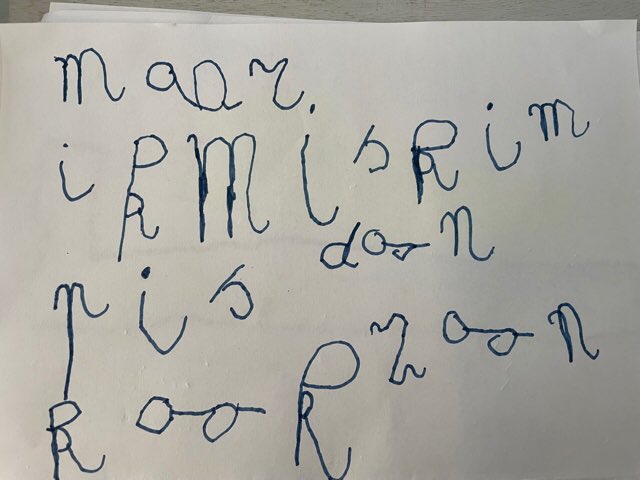 maar.
ik mis kim
doo n
pis
kook zoon